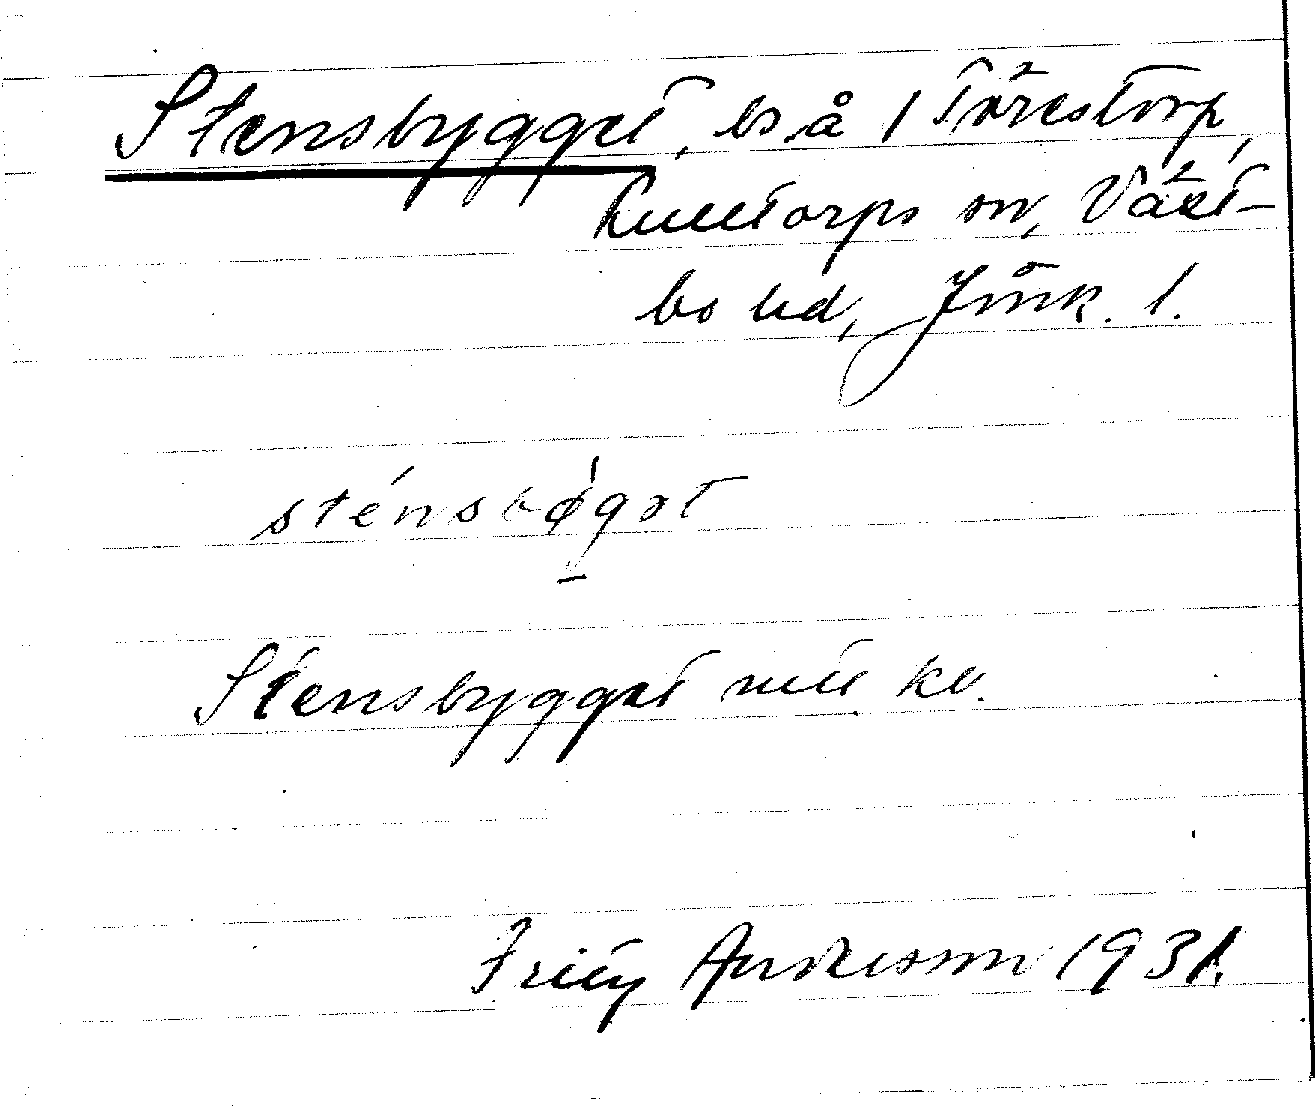 Stensbygget, bs å 1 Törestorp,
Kulltorps sn, Väst-
bo hd, Jönk. l.
sténsbøgət
Stensbygget
Anderson 1931.